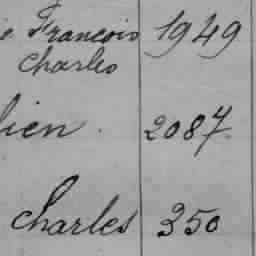 François 1949
Charles
lien. 2087
Charles 350